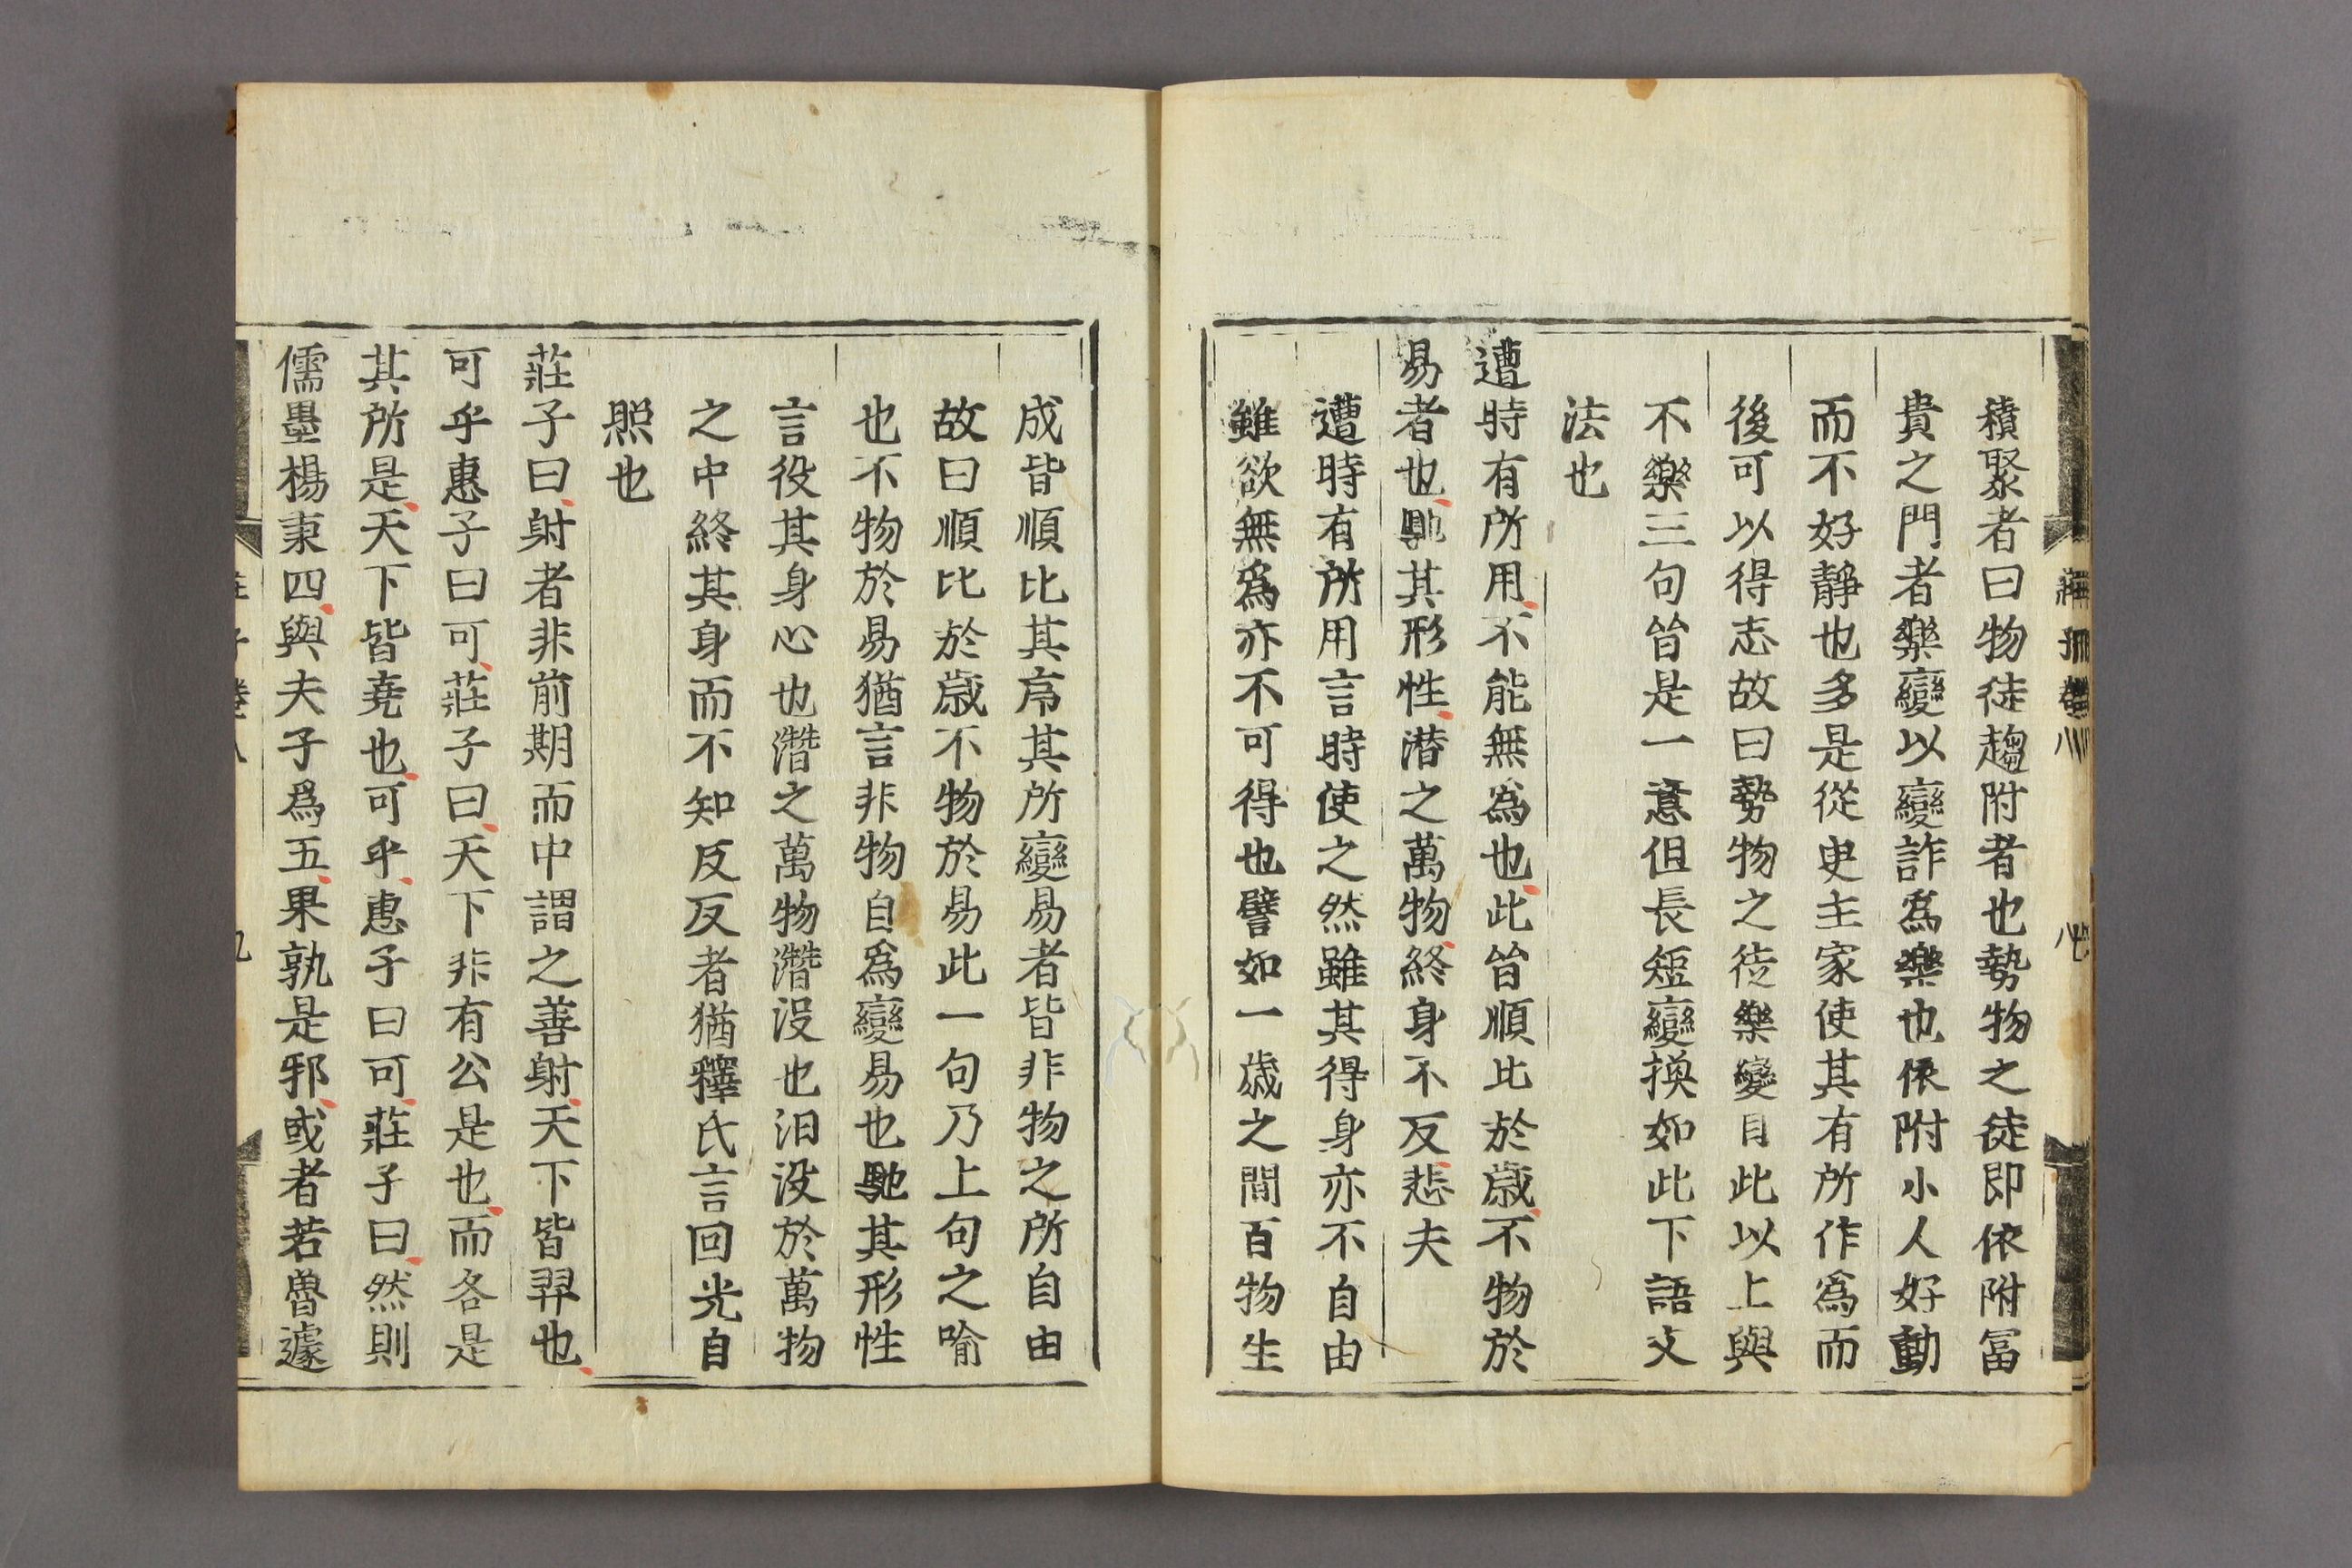 積聚者曰物徒趨附者也勢物之徒即依附冨
貴之門者樂變以變詐爲樂也依附小人好動
而不好靜也多是從史主家使其有所作爲而
後可以得志故曰勢物之徒樂變自此以上與
不樂三句皆是一意但長短變換如此下語文
法也
遭時有所用不能無爲也此皆順比於歲不物於
易者也馳其形性潛之萬物終身不反悲夫
遭時有所用言時使之然雖其得身亦不自由
雖欲無爲亦不可得也譬如一歲之間百物生
成皆順比其序其所變易者皆非物之所自由
故曰順比於歲不物於易此一句乃上句之喻
也不物於易猶言非物自爲變易也馳其形性
言役其身心也潛之萬物潛没也汨没於萬物
之中終其身而不知反反者猶釋氏言回光自
照也
莊子曰射者非前期而中謂之善射天下皆羿也
可乎惠子曰可莊子曰天下非有公是也而各是
其所是天下皆堯也可乎惠子曰可莊子曰然則
儒墨楊秉四與夫子爲五果孰是邪或者若魯遽